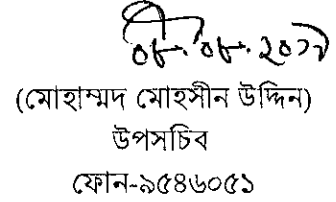 ০৮.০৮.২০১৭
(মোহাম্মদ মোহসীন উদ্দিন)
উপসচিব
ফোন-৯৫৪৬০৫১